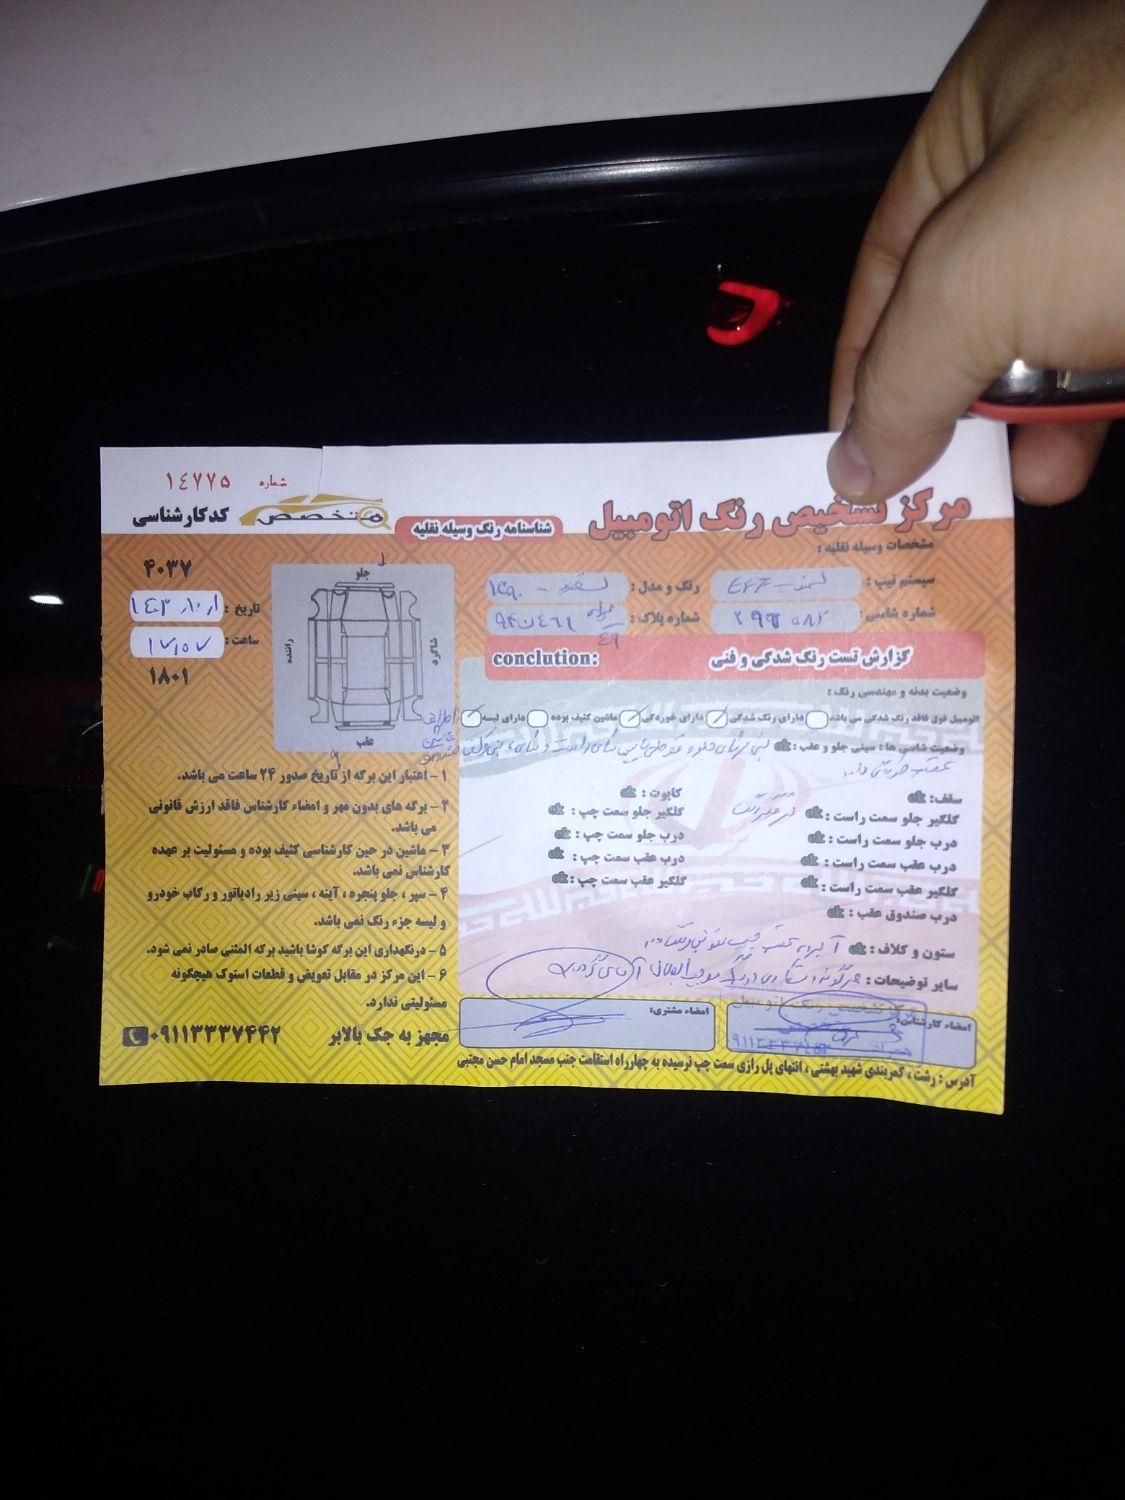 مرکز تشخیص رنگ اتومبیل
شناسنامه رنگ وسیله نقلیه
متخصص
شماره ۱٤۷۷۵
کد کارشناسی
۴۰۳۷
تاریخ :
ساعت : ۱۷٫۵۷
۱۸۰۱
مشخصات وسیله نقلیه :
سیستم تیپ : سمند - EF7
رنگ و مدل : سفید - ۱۳۹۰
شماره شاسی :
شماره پلاک :
گزارش تست رنگ شدگی و فنی
conclution:
وضعیت بدنه و مهندسی رنگ :
اتومبیل فوق فاقد رنگ شدگی می باشد دارای رنگ شدگی دارای خوردگی ماشین کثیف بوده دارای لیسه
وضعیت شاسی ها : سینی جلو و عقب : ok
سقف: ok
کاپوت : ok
گلگیر جلو سمت راست : ok
گلگیر جلو سمت چپ : ok
درب جلو سمت راست : ok
درب جلو سمت چپ : ok
درب عقب سمت راست : ok
درب عقب سمت چپ : ok
گلگیر عقب سمت راست : ok
گلگیر عقب سمت چپ : ok
درب صندوق عقب : ok
ستون و کلاف : ok
سایر توضیحات :
امضاء کارشناس:
امضاء مشتری:
جلو
شاگرد
راننده
عقب
۱ - اعتبار این برگه از تاریخ صدور ۲۴ ساعت می باشد.
۲ - برگه های بدون مهر و امضاء کارشناس فاقد ارزش قانونی
می باشد.
۳ - ماشین در حین کارشناسی کثیف بوده و مسئولیت بر عهده
کارشناس نمی باشد.
۴ - سپر ، جلو پنجره ، آینه ، سینی زیر رادیاتور و رکاب خودرو
و لیسه جزء رنگ نمی باشد.
۵ - درنگهداری این برگه کوشا باشید برگه المثنی صادر نمی شود.
۶ - این مرکز در مقابل تعویض و قطعات استوک هیچگونه
مسئولیتی ندارد.
مجهز به جک بالابر ۰۹۱۱۳۳۳۷۴۴۲
آدرس : رشت ، کمربندی شهید بهشتی ، انتهای پل رازی سمت چپ نرسیده به چهارراه استقامت جنب مسجد امام حسن مجتبی